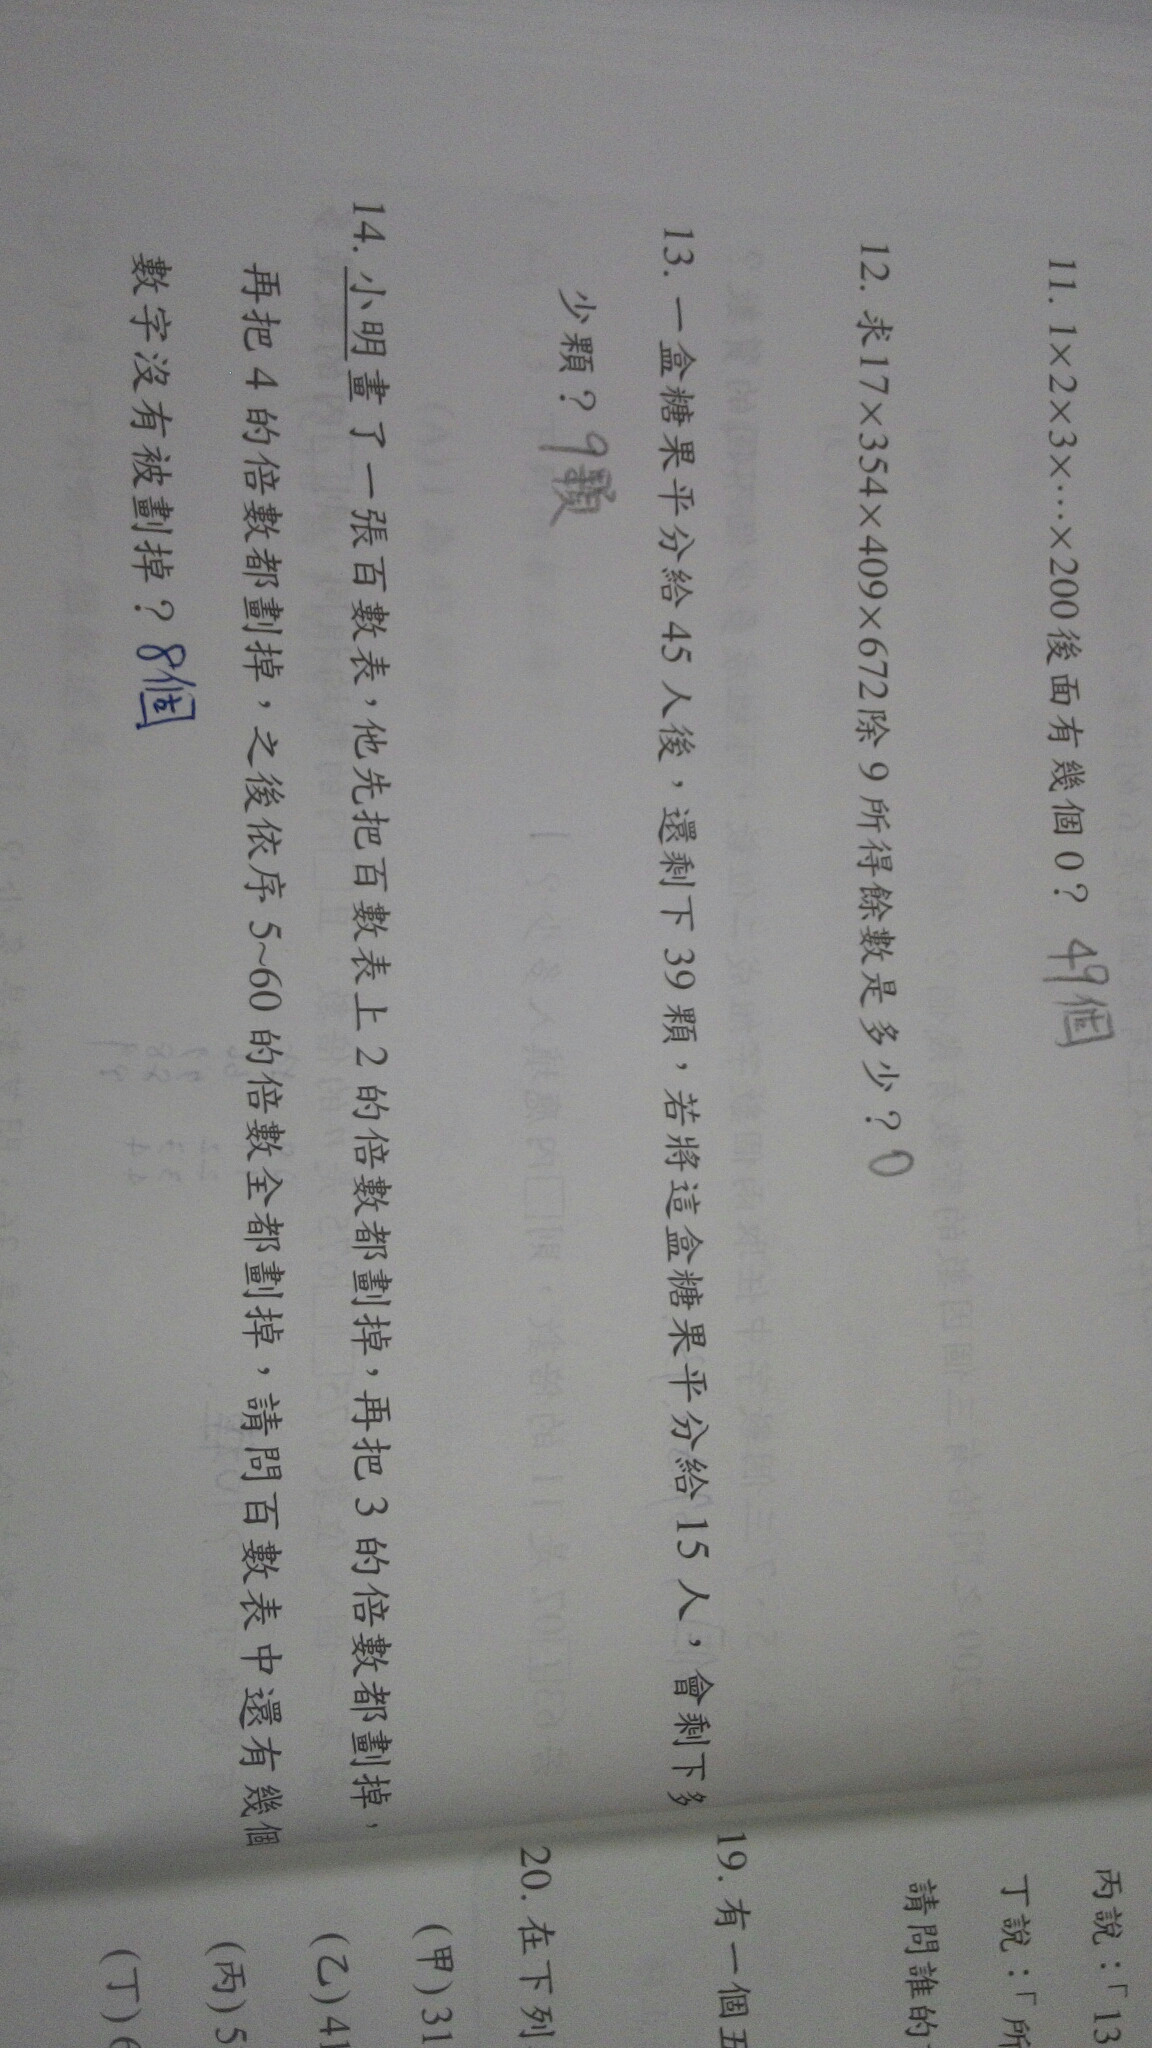 11. 1×2×3×…×200後面有幾個0? 49個
12. 求17×354×409×672除9所得餘數是多少?0
13. 一盒糖果平分給45人後,還剩下39顆,若將這盒糖果平分給15人,會剩下多
少顆?9顆
14. 小明畫了一張百數表,他先把百數表上2的倍數都劃掉,再把3的倍數都劃掉,
再把4的倍數都劃掉,之後依序5~60的倍數全都劃掉,請問百數表中還有幾個
數字沒有被劃掉?8個
丙說:「13
丁說:「所
請問誰的
19. 有一個五
20. 在下列
(甲)31
(乙)41
(丙)5
(丁)6